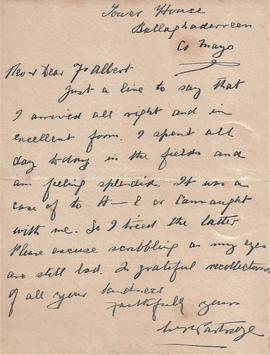 Tower House
Ballaghaderreen
Co Mayo
Rev & Dear Fr Albert
Just a line to say that
I arrived all right and in
excellent form. I spent all
day to-day in the fields and
am feeling splendid. It was a
case of to H—l or Connaught
with me. So I tried the latter
Please excuse scribbling as my eyes
are still bad. I grateful recollections
of all your kindness
Faithfully yours
Partridge